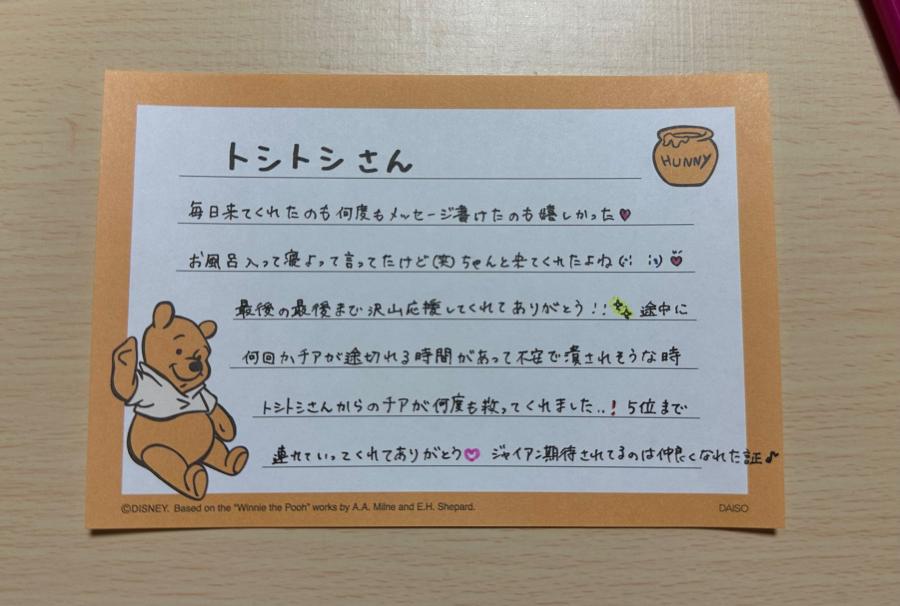 トシトシさん
HUNNY
毎日来てくれたのも何度もメッセージ書けたのも嬉しかった♥
お風呂入って寝よって言ってたけど(笑)ちゃんと来てくれたよね
最後の最後まで沢山応援してくれてありがとう!!✨途中に
何回かチアが途切れる時間があって不安で潰されそうな時
トシトシさんからのチアが何度も救ってくれました..! 5位まで
連れていってくれてありがとう♡ ジャイアン期待されてるのは仲良くなれた証♪
©DISNEY. Based on the "Winnie the Pooh" works by A.A. Milne and E.H. Shepard.
DAISO